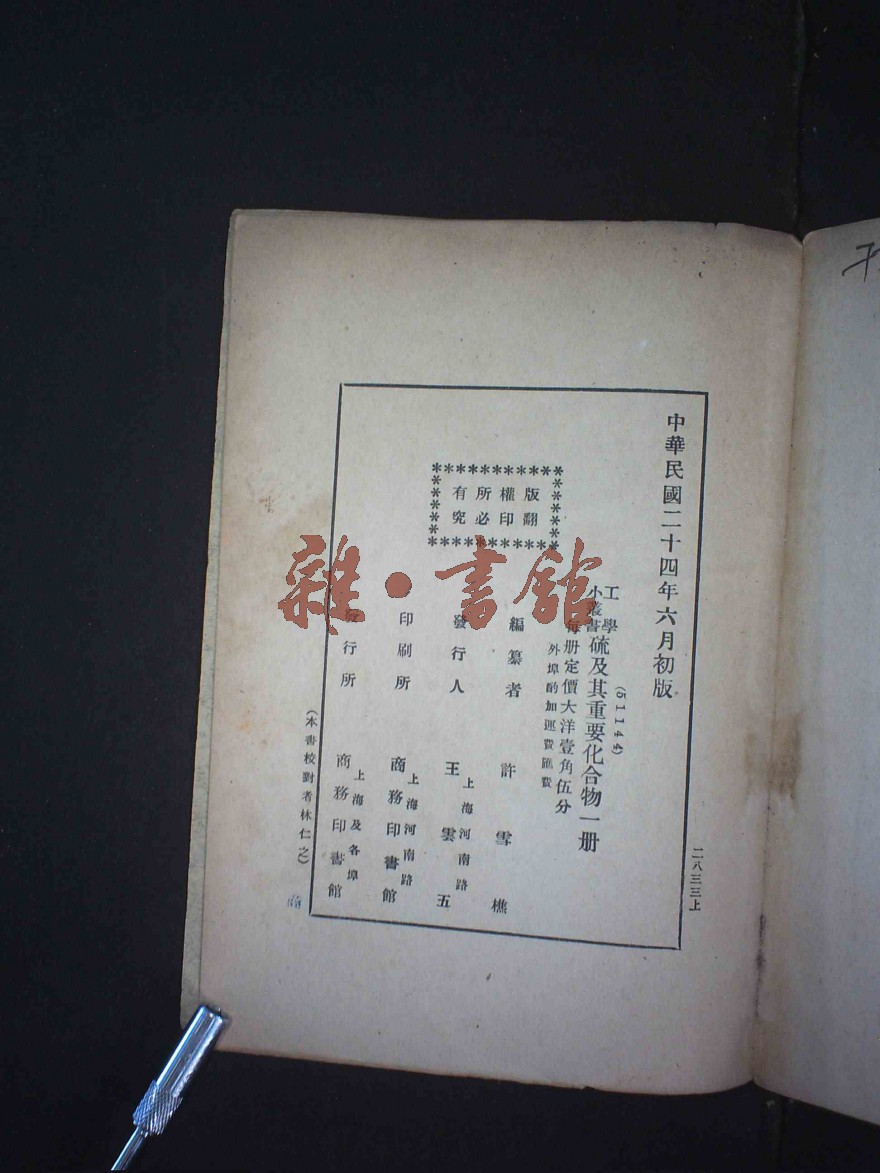 中華民國二十四年六月初版
(51144)
工學
小叢書
硫及其重要化合物一册
每册定價大洋壹角伍分
外埠酌加運費匯費
版權所有
翻印必究
編纂者 許雪樵
發行人 王雲五
上海河南路
印刷所 商務印書館
上海河南路
發行所 商務印書館
上海及各埠
(本書校對者林仁之)
二八三三上
雜·書館